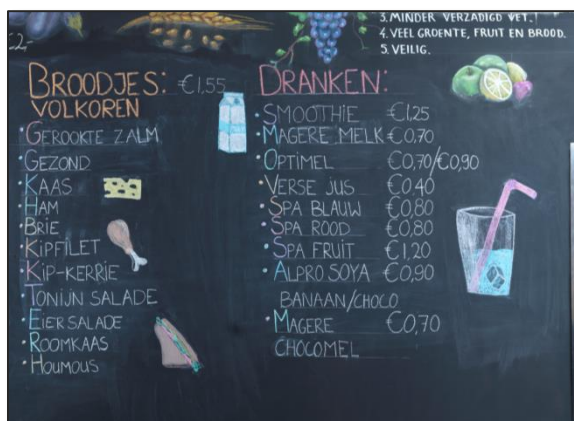 3. MINDER VERZADIGD VET.
4. VEEL GROENTE, FRUIT EN BROOD.
5. VEILIG.
BROODJES: €1,55
VOLKOREN
• GEROOKTE ZALM
• GEZOND
• KAAS
• HAM
• BRIE
• KIPFILET
• KIP-KERRIE
• TONIJN SALADE
• EIERSALADE
• ROOMKAAS
• HOUMOUS
DRANKEN:
• SMOOTHIE €1,25
• MAGERE MELK €0,70
• OPTIMEL €0,70/€0,90
• VERSE JUS €0,40
• SPA BLAUW €0,80
• SPA ROOD €0,80
• SPA FRUIT €1,20
• ALPRO SOYA €0,90
BANAAN/CHOCO
• MAGERE €0,70
CHOCOMEL